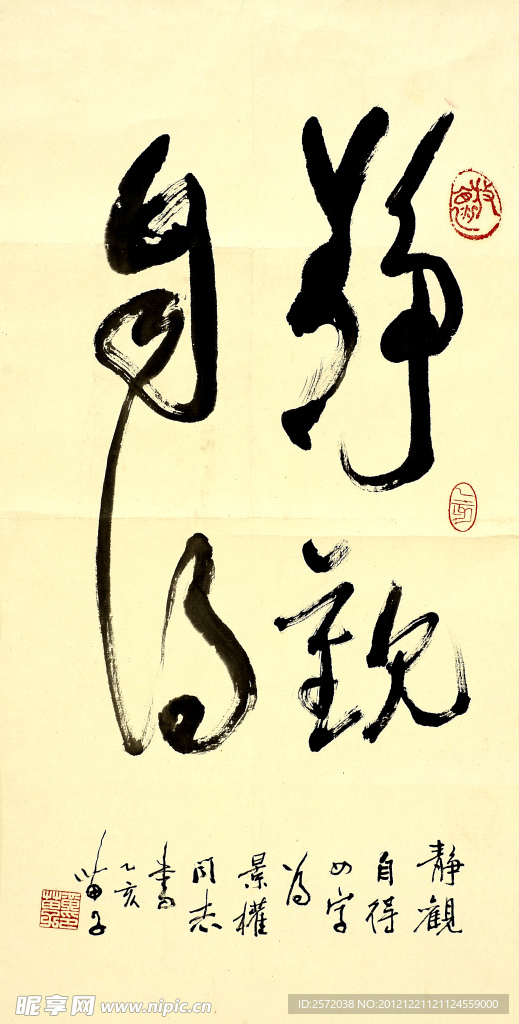 静觀
自得
静觀
自得
四字
為
景權
同志
書
乙亥
苗子
昵享网 www.nipic.cn
ID:2572038 NO:20121221121124559000